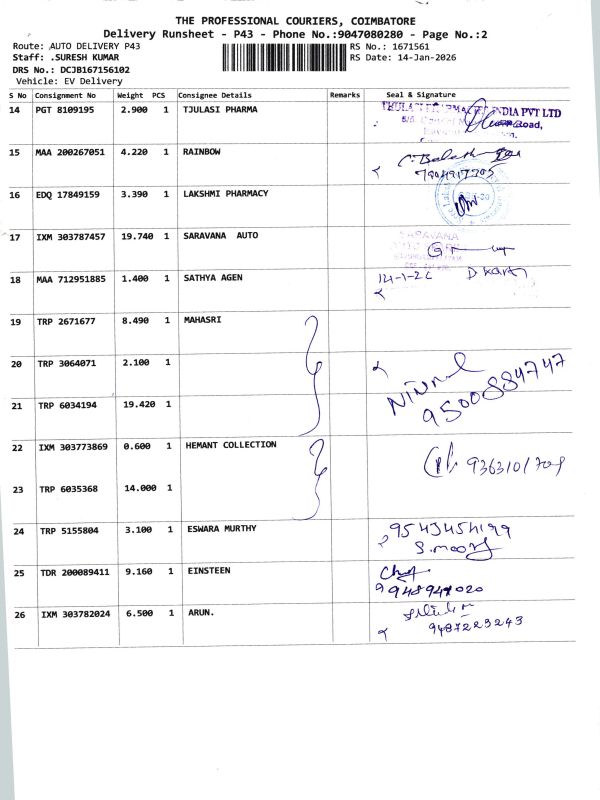 THE PROFESSIONAL COURIERS, COIMBATORE
Delivery Runsheet - P43 - Phone No.:9047080280 - Page No.:2
Route: AUTO DELIVERY P43 RS No.: 1671561
Staff: .SURESH KUMAR RS Date: 14-Jan-2026
DRS No.: DCJB167156102
Vehicle: EV Delivery
S No Consignment No Weight PCS Consignee Details Remarks Seal & Signature
14 PGT 8109195 2.900 1 TJULASI PHARMA
INDIA PVT LTD
Road,
15 MAA 200267051 4.220 1 RAINBOW
16 EDQ 17849159 3.390 1 LAKSHMI PHARMACY
17 IXM 303787457 19.740 1 SARAVANA AUTO
SARAVANA
18 MAA 712951885 1.400 1 SATHYA AGEN
19 TRP 2671677 8.490 1 MAHASRI
20 TRP 3064071 2.100 1
Nirmal
9500884747
21 TRP 6034194 19.420 1
22 IXM 303773869 0.600 1 HEMANT COLLECTION
23 TRP 6035368 14.000 1
24 TRP 5155804 3.100 1 ESWARA MURTHY
25 TDR 200089411 9.160 1 EINSTEEN
26 IXM 303782024 6.500 1 ARUN.
9487223243